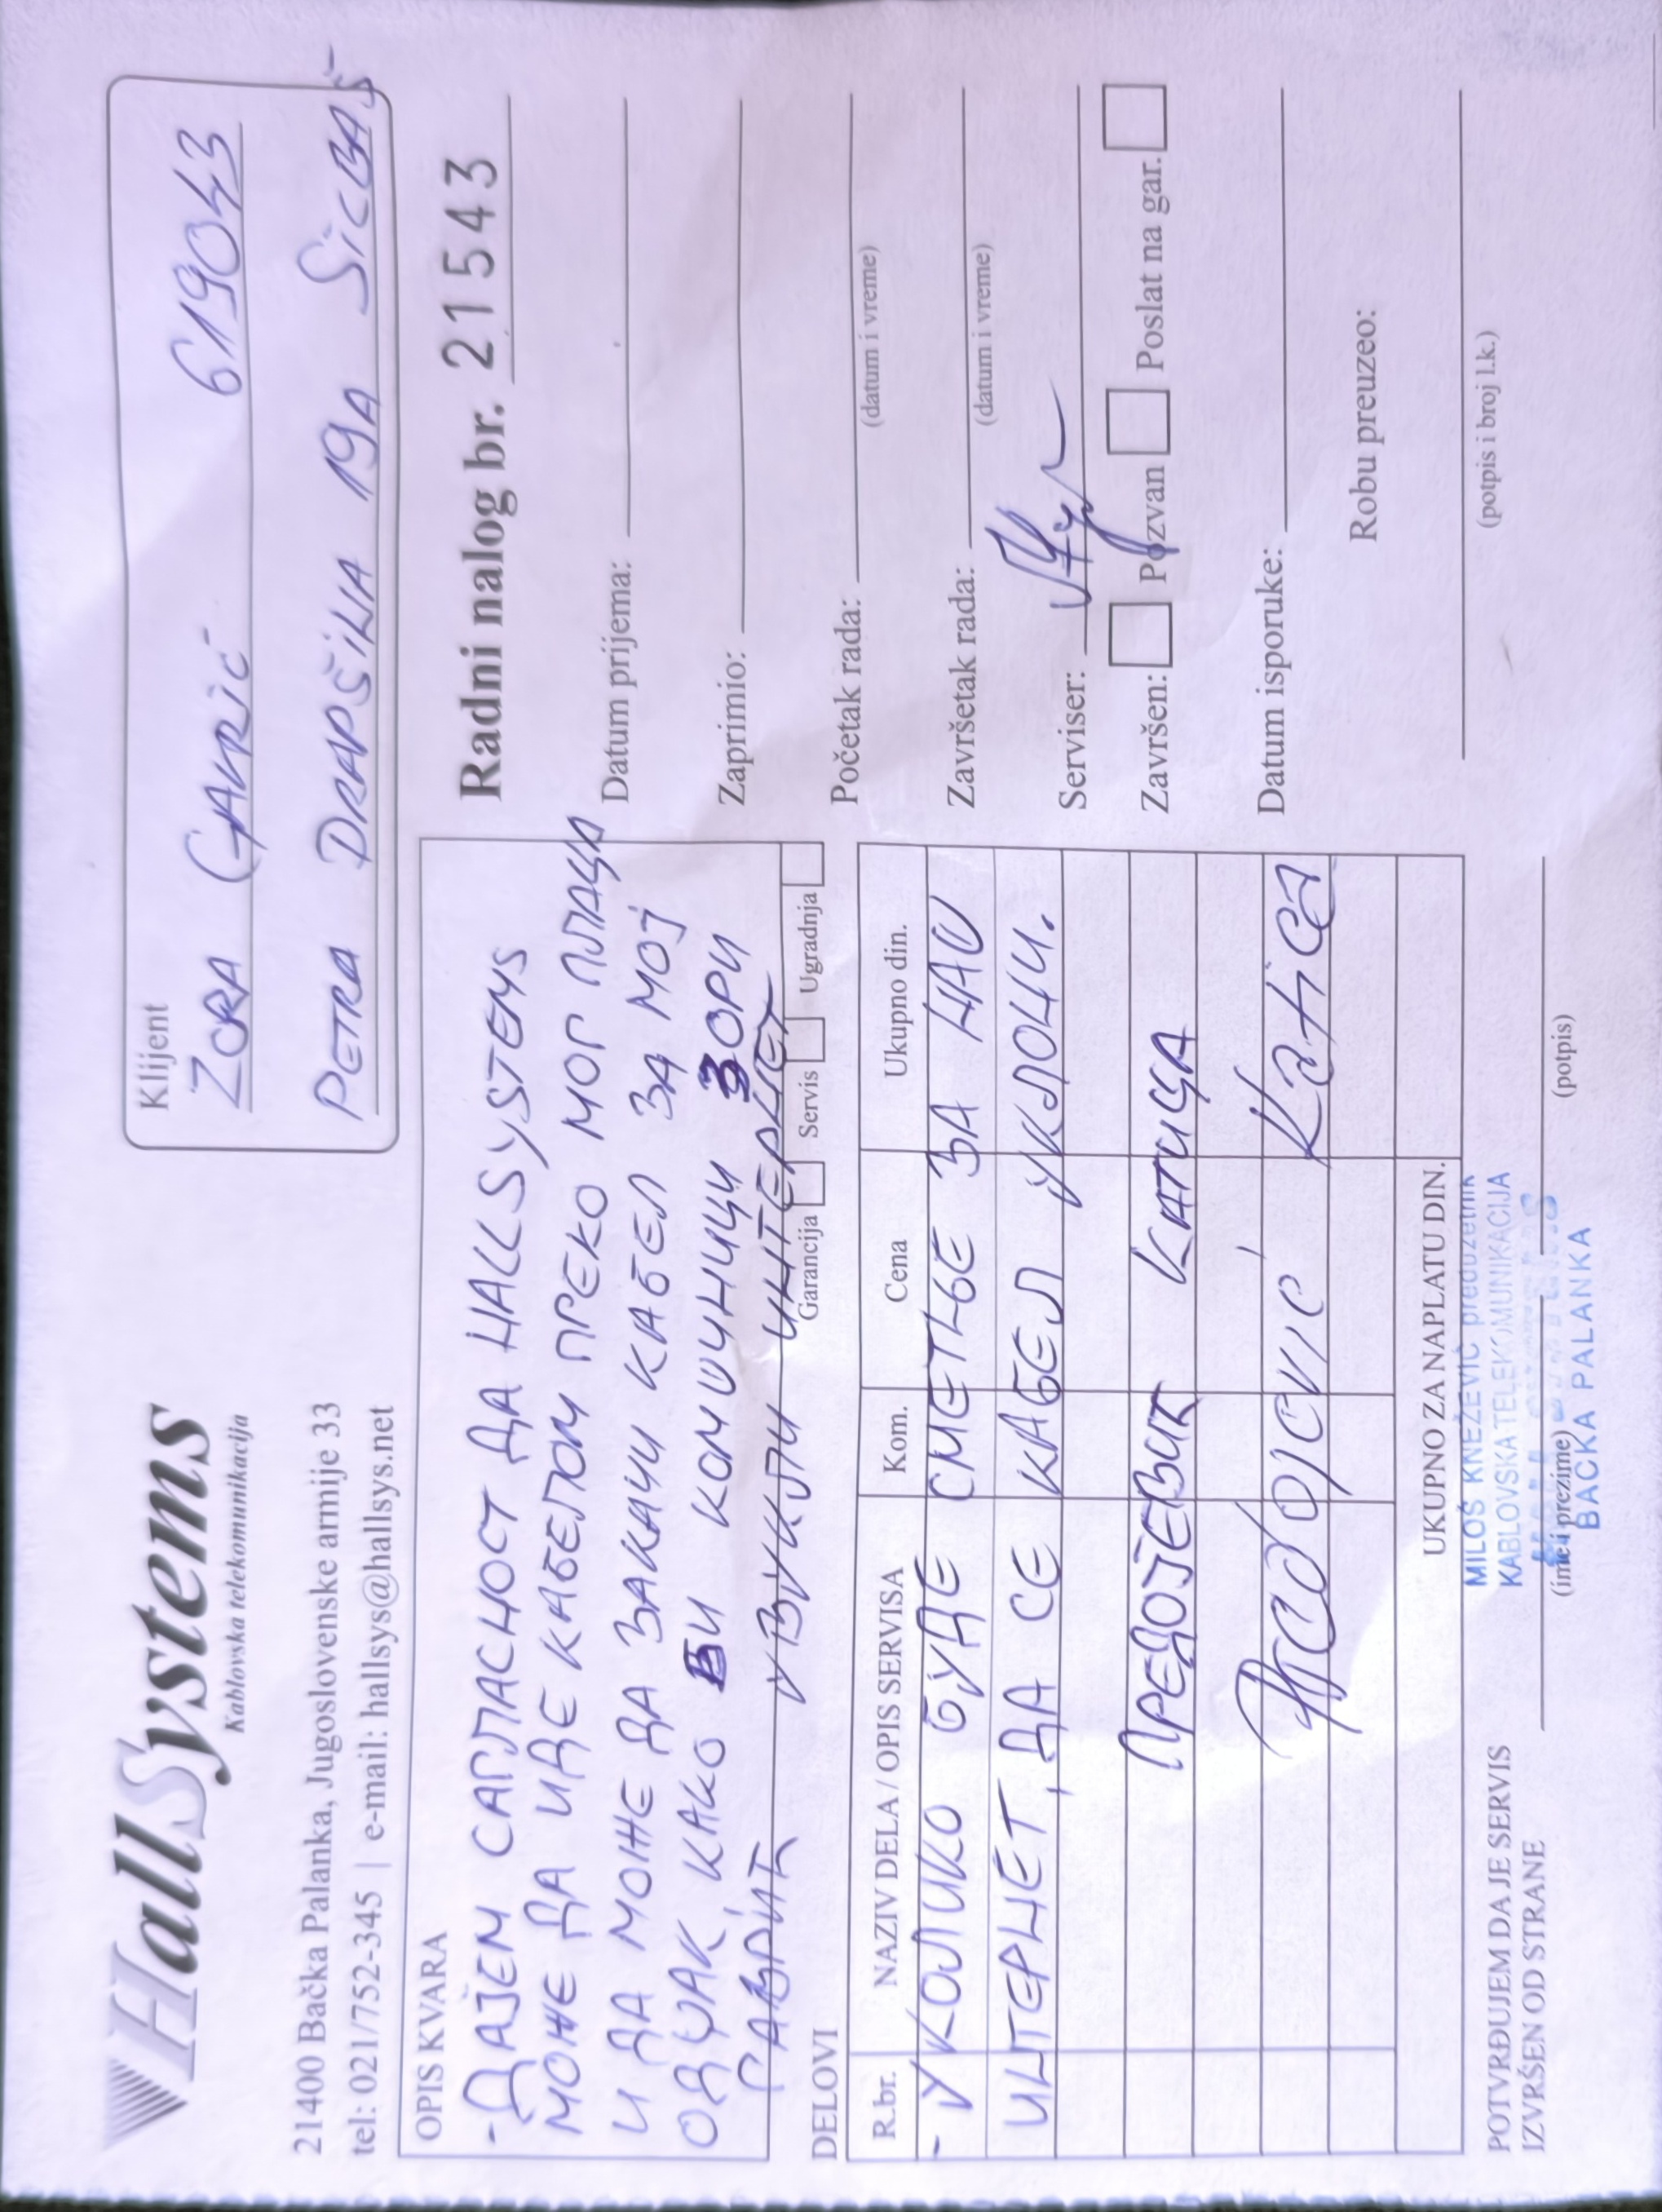 HallSystems
Kablovska telekomunikacija
21400 Bačka Palanka, Jugoslovenske armije 33
tel: 021/752-345 | e-mail: hallsys@hallsys.net
Klijent
ZORA GAVRIĆ 619043
PETRA DRAPŠINA 19A SILBAŠ
Radni nalog br. 21543
Datum prijema:
Zaprimio:
Početak rada:
(datum i vreme)
Završetak rada:
(datum i vreme)
Serviser:
Završen: Pozvan Poslat na gar.
Datum isporuke:
Robu preuzeo:
(potpis i broj l.k.)
OPIS KVARA
- ДАЈЕМ САГЛАСНОСТ ДА HALLSYSTEMS
МОЖЕ ДА ИДЕ КАБЕЛОМ ПРЕКО МОГ ПЛАЦА
И ДА МОЖЕ ДА ЗАКАЧИ КАБЕЛ ЗА МОЈ
ОЏАК КАКО БИ КОМШИНИЦИ ЗОРИ
ГАВРИЋ УВУКЛИ ИНТЕРНЕТ
Garancija Servis Ugradnja
DELOVI
R.br. NAZIV DELA / OPIS SERVISA Kom. Cena Ukupno din.
- УКОЛИКО БУДЕ СМЕТЊЕ ЗА НАШ
ИНТЕРНЕТ, ДА СЕ КАБЕЛ УКЛОНИ.
ПРЕДОЈЕВИЋ КАТИЦА
Katica
UKUPNO ZA NAPLATU DIN.
POTVRĐUJEM DA JE SERVIS
IZVRŠEN OD STRANE
(ime i prezime)
(potpis)
MILOŠ KNEŽEVIĆ preduzetnik
KABLOVSKA TELEKOMUNIKACIJA
BAČKA PALANKA